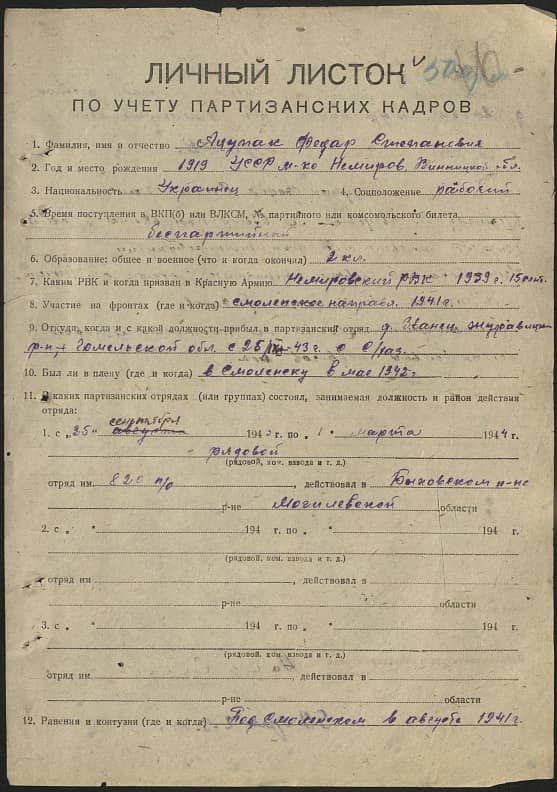 ЛИЧНЫЙ ЛИСТОК
ПО УЧЕТУ ПАРТИЗАНСКИХ КАДРОВ
1. Фамилия, имя и отчество Федар Степанович
2. Год и место рождения 1919 УССР м-ко Немиров Винницкой обл.
3. Национальность Украинец 4. Соцположение рабочий
5. Время поступления в ВКП(б) или ВЛКСМ, № партийного или комсомольского билета
беспартийный
6. Образование: общее и военное (что и когда окончил) 2 кл.
7. Каким РВК и когда призван в Красную Армию Немировский РВК 1939 г. 15
8. Участие на фронтах (где и когда) Смоленское направл. 1941 г.
9. Откуда, когда и с какой должности прибыл в партизанский отряд д.
р-н, Гомельской обл. с 25 43 г.
10. Был ли в плену (где и когда) в Смоленску в мае 1942 г.
11. В каких партизанских отрядах (или группах) состоял, занимаемая должность и район действия
отряда:
сентября
1. с „25“ августа 1943 г. по „1“ марта 1944 г.
рядовой
(рядовой, ком. взвода и т. д.)
отряд им. 820 п/о, действовал в Быховском р-не
р-не Могилевской области
2. с „ “ 194 г. по „ “ 194 г.
(рядовой, ком. взвода и т. д.)
отряд им , действовал в
р-не области
3. с „ “ 194 г. по „ “ 194 г.
(рядовой, ком. взвода и т. д.)
отряд им , действовал в
р-не области
12. Ранения и контузии (где и когда) Под Смоленском в августе 1941 г.